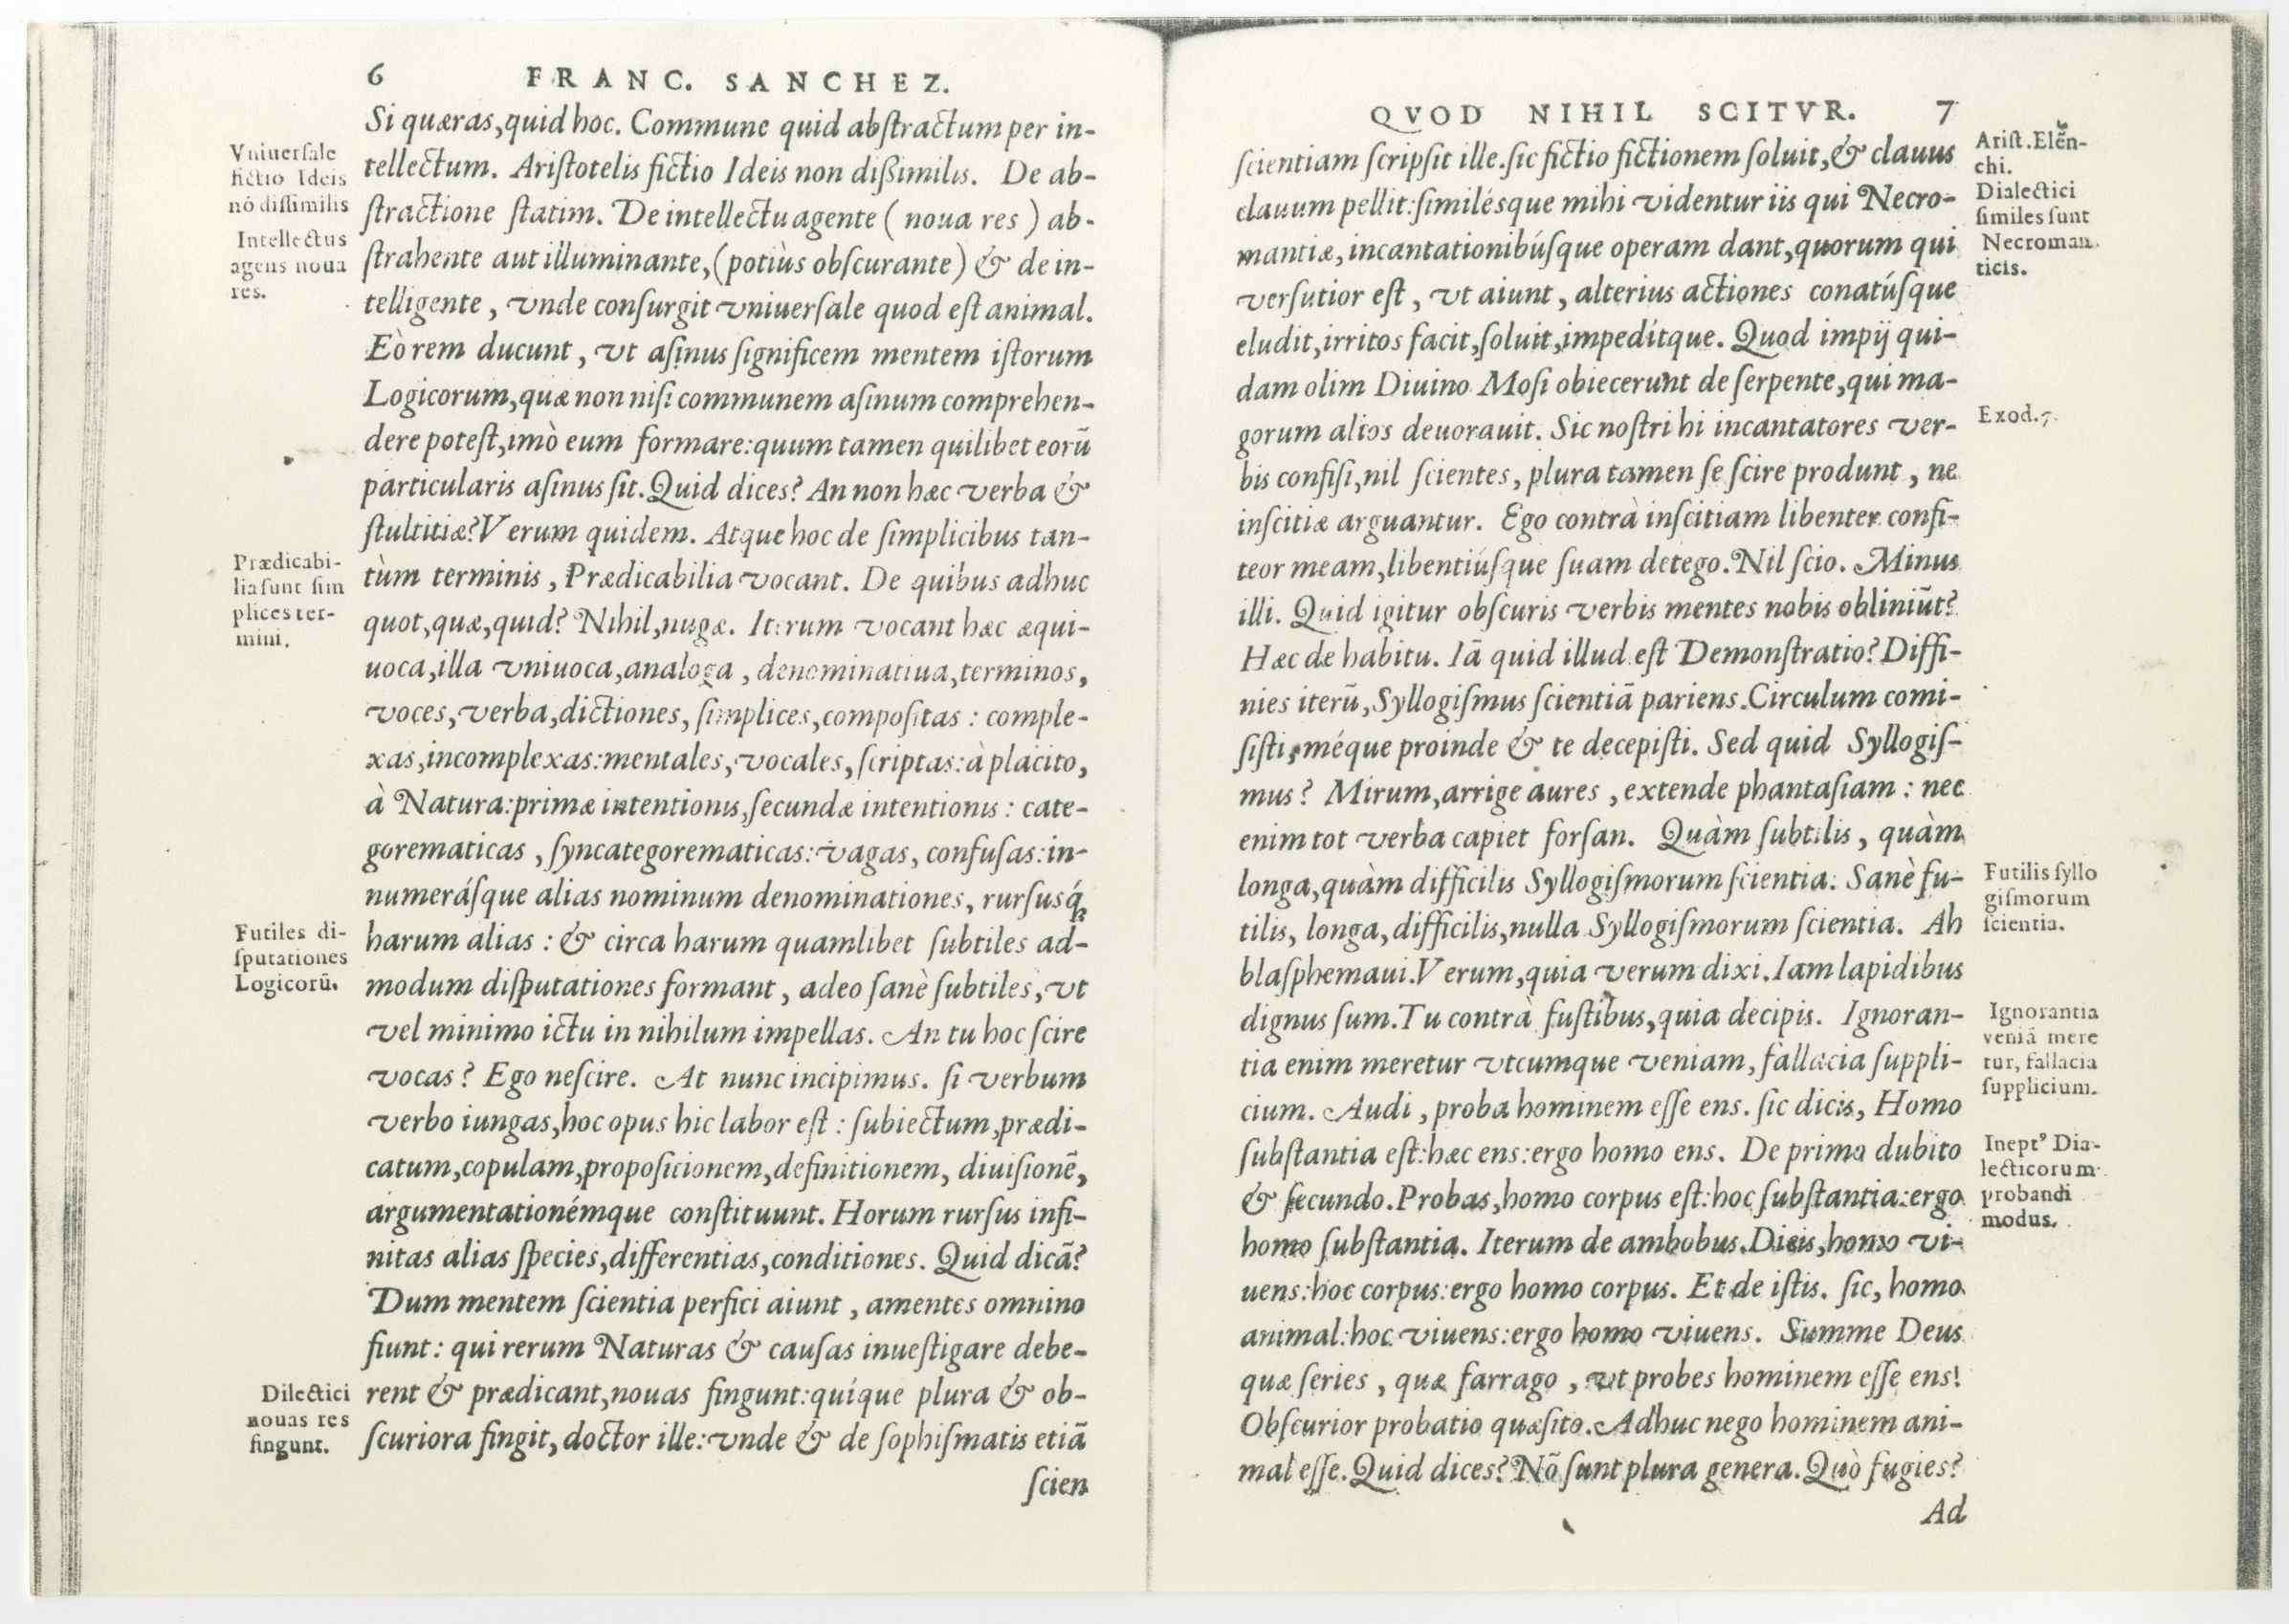 6 FRANC. SANCHEZ.
Si quæras, quid hoc. Commune quid abstractum per in-
tellectum. Aristotelis fictio Ideis non dißimilis. De ab-
stractione statim. De intellectu agente (noua res) ab-
strahente aut illuminante, (potiùs obscurante) & de in-
telligente, vnde consurgit vniuersale quod est animal.
Eò rem ducunt, vt asinus significem mentem istorum
Logicorum, quæ non nisi communem asinum comprehen-
dere potest, imò eum formare: quum tamen quilibet eorũ
particularis asinus sit. Quid dices? An non hæc verba &
stultitiæ? Verum quidem. Atque hoc de simplicibus tan-
tùm terminis, Prædicabilia vocant. De quibus adhuc
quot, quæ, quid? Nihil, nugæ. Iterum vocant hæc æqui-
uoca, illa vniuoca, analoga, denominatiua, terminos,
voces, verba, dictiones, simplices, compositas: comple-
xas, incomplexas: mentales, vocales, scriptas: à placito,
à Natura: primæ intentionis, secundæ intentionis: cate-
gorematicas, syncategorematicas: vagas, confusas: in-
numerásque alias nominum denominationes, rursusq́;
harum alias: & circa harum quamlibet subtiles ad-
modum disputationes formant, adeo sanè subtiles, vt
vel minimo ictu in nihilum impellas. An tu hoc scire
vocas? Ego nescire. At nunc incipimus. si verbum
verbo iungas, hoc opus hic labor est: subiectum, prædi-
catum, copulam, propositionem, definitionem, diuisionẽ,
argumentationémque constituunt. Horum rursus infi-
nitas alias species, differentias, conditiones. Quid dicã?
Dum mentem scientia perfici aiunt, amentes omnino
fiunt: qui rerum Naturas & causas inuestigare debe-
rent & prædicant, nouas fingunt: quíque plura & ob-
scuriora fingit, doctor ille: vnde & de sophismatis etiã
scien
Vniuersale
fictio Ideis
nõ dissimilis
Intellectus
agens noua
res.
Prædicabi-
lia sunt sim
plices ter-
mini.
Futiles di-
sputationes
Logicorũ.
Dilectici
nouas res
fingunt.
QVOD NIHIL SCITVR. 7
scientiam scripsit ille. sic fictio fictionem soluit, & clauus
clauum pellit: similésque mihi videntur iis qui Necro-
mantiæ, incantationibúsque operam dant, quorum qui
versutior est, vt aiunt, alterius actiones conatúsque
eludit, irritos facit, soluit, impedítque. Quod impij qui-
dam olim Diuino Mosi obiecerunt de serpente, qui ma-
gorum alios deuorauit. Sic nostri hi incantatores ver-
bis confisi, nil scientes, plura tamen se scire produnt, ne
inscitiæ arguantur. Ego contrà inscitiam libenter confi-
teor meam, libentiúsque suam detego. Nil scio. Minus
illi. Quid igitur obscuris verbis mentes nobis obliniũt?
Hæc de habitu. Iã quid illud est Demonstratio? Diffi-
nies iterũ, Syllogismus scientiã pariens. Circulum comi-
sisti, méque proinde & te decepisti. Sed quid Syllogis-
mus? Mirum, arrige aures, extende phantasiam: nec
enim tot verba capiet forsan. Quàm subtilis, quàm
longa, quàm difficilis Syllogismorum scientia. Sanè fu-
tilis, longa, difficilis, nulla Syllogismorum scientia. Ah
blasphemaui. Verum, quia verum dixi. Iam lapidibus
dignus sum. Tu contrà fustibus, quia decipis. Ignoran-
tia enim meretur vtcumque veniam, fallacia suppli-
cium. Audi, proba hominem esse ens. sic dicis, Homo
substantia est: hæc ens: ergo homo ens. De primo dubito
& secundo. Probas, homo corpus est: hoc substantia: ergo
homo substantia. Iterum de ambobus. Dicis, homo vi-
uens: hoc corpus: ergo homo corpus. Et de istis. sic, homo
animal: hoc viuens: ergo homo viuens. Summe Deus
quæ series, quæ farrago, vt probes hominem esse ens!
Obscurior probatio quæsito. Adhuc nego hominem ani-
mal esse. Quid dices? Nõ sunt plura genera. Quò fugies?
Ad
Arist. Elẽn-
chi.
Dialectici
similes sunt
Necroman.
ticis.
Exod. 7.
Futilis syllo
gismorum
scientia.
Ignorantia
veniã mere
tur, fallacia
supplicium.
Inept⁹ Dia-
lecticorum
probandi
modus.